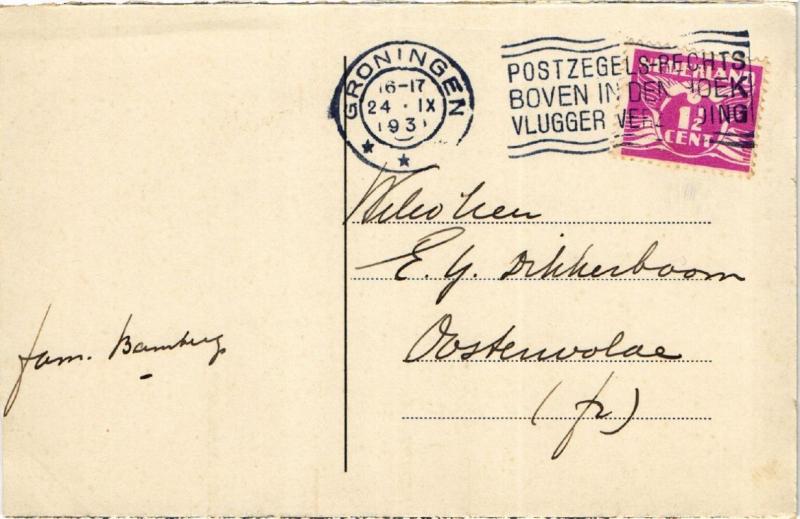 GRONINGEN
16-17
24 · IX
1931
POSTZEGELS RECHTS
BOVEN IN DEN HOEK
VLUGGER VERZENDING
NEDERLAND
1½
CENT
E. J. Dikkerboom
Oosterwolde
(fr)
fam. Bamberg